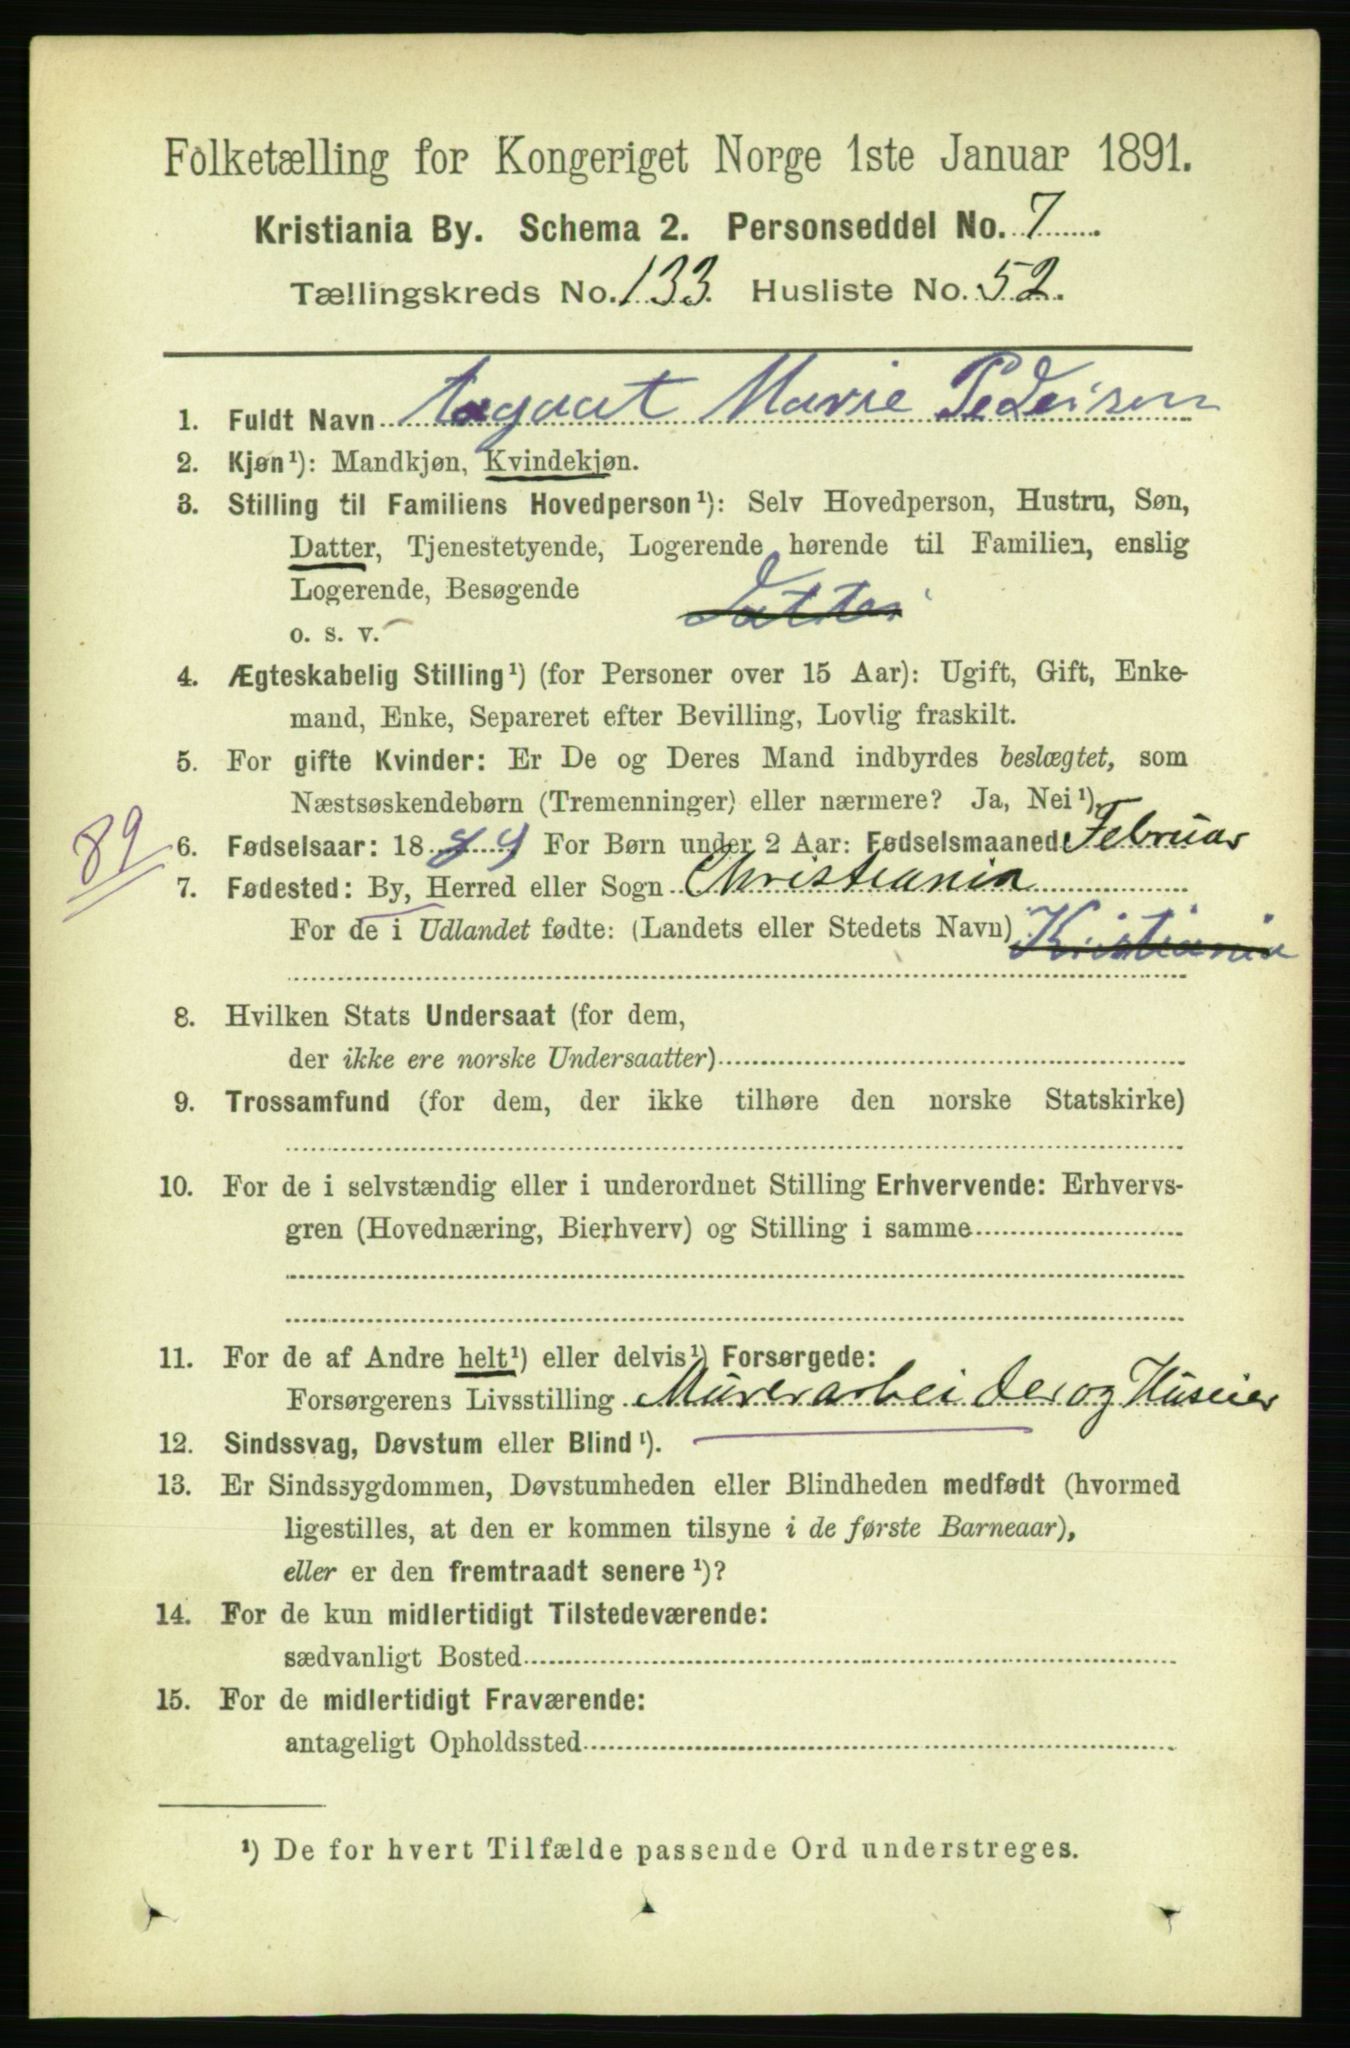 Folketælling for Kongeriget Norge 1ste Januar 1891.
Kristiania By. Schema 2. Personseddel No. 7
Tællingskreds No. 133. Husliste No. 52.
1. Fuldt Navn Aagaat Marie Pedersen
2. Kjøn¹): Mandkjøn, Kvindekjøn.
3. Stilling til Familiens Hovedperson¹): Selv Hovedperson, Hustru, Søn,
Datter, Tjenestetyende, Logerende hørende til Familien, enslig
Logerende, Besøgende
o. s. v. Datter
4. Ægteskabelig Stilling¹) (for Personer over 15 Aar): Ugift, Gift, Enke-
mand, Enke, Separeret efter Bevilling, Lovlig fraskilt.
5. For gifte Kvinder: Er De og Deres Mand indbyrdes beslægtet, som
Næstsøskendebørn (Tremenninger) eller nærmere? Ja, Nei¹).
89
6. Fødselsaar: 1889 For Børn under 2 Aar: Fødselsmaaned Februar
7. Fødested: By, Herred eller Sogn Christiania
For de i Udlandet fødte: (Landets eller Stedets Navn) Kristiania
8. Hvilken Stats Undersaat (for dem,
der ikke ere norske Undersaatter)
9. Trossamfund (for dem, der ikke tilhøre den norske Statskirke)
10. For de i selvstændig eller i underordnet Stilling Erhvervende: Erhvervs-
gren (Hovednæring, Bierhverv) og Stilling i samme
11. For de af Andre helt¹) eller delvis¹) Forsørgede:
Forsørgerens Livsstilling Murerarbeider og Huseier
12. Sindssvag, Døvstum eller Blind¹).
13. Er Sindssygdommen, Døvstumheden eller Blindheden medfødt (hvormed
ligestilles, at den er kommen tilsyne i de første Barneaar),
eller er den fremtraadt senere¹)?
14. For de kun midlertidigt Tilstedeværende:
sædvanligt Bosted
15. For de midlertidigt Fraværende:
antageligt Opholdssted
¹) De for hvert Tilfælde passende Ord understreges.